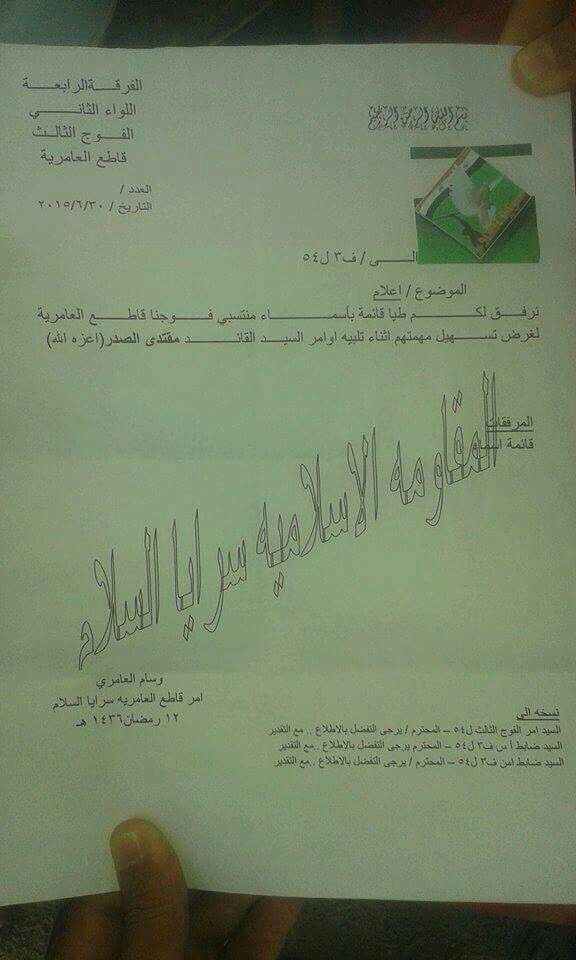 بسم الله الرحمن الرحيم
الفرقـــة الرابعـــة
اللواء الثاني
الفــوج الثالث
قاطع العامرية
العدد /
التاريخ / ٢٠١٥/٦/٣٠
الــى / ف٣ ل٥٤
الموضوع / اعلام
نرفق لكــم طيا قائمة بأسمــاء منتسبي فــوجنا قاطــع العامرية
لغرض تسهيل مهمتهم اثناء تلبيه اوامر السيد القائــد مقتدى الصدر(اعزه الله)
المرفقات
قائمة اسماء
المقاومه الاسلاميه سرايا السلام
وسام العامري
امر قاطع العامريه سرايا السلام
١٢ رمضان ١٤٣٦ هـ
نسخه الى
السيد امر الفوج الثالث ل٥٤ – المحترم / يرجى التفضل بالاطلاع .. مع التقدير
السيد ضابط أ س ف٣ ل٥٤ – المحترم يرجى التفضل بالاطلاع ..مع التقدير
السيد ضابط امن ف٣ ل٥٤ – المحترم / يرجى التفضل بالاطلاع ..مع التقدير